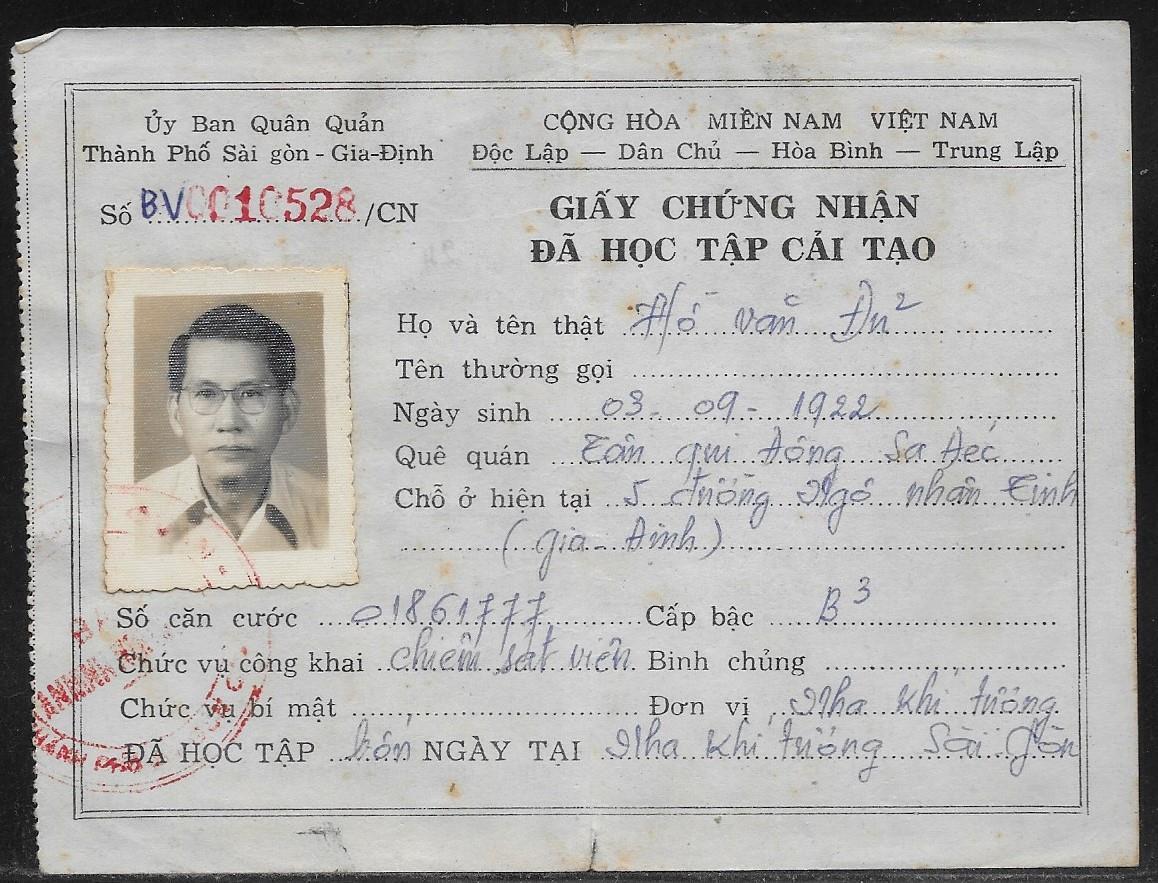 Ủy Ban Quân Quản
Thành Phố Sài gòn - Gia-Định
CỘNG HÒA MIỀN NAM VIỆT NAM
Độc Lập — Dân Chủ — Hòa Bình — Trung Lập
Số BV0010528/CN
GIẤY CHỨNG NHẬN
ĐÃ HỌC TẬP CẢI TẠO
Họ và tên thật Hồ văn
Tên thường gọi
Ngày sinh 03 - 09 - 1922
Quê quán Tân qui Đông Sa Đéc
Chỗ ở hiện tại 5 đường Ngô nhân Tịnh
(gia - Định)
Số căn cước 01861777 Cấp bậc B3
Chức vụ công khai chiêm sát viên Binh chủng
Chức vụ bí mật Đơn vị Nha khí tượng
ĐÃ HỌC TẬP bốn NGÀY TẠI Nha khí tượng Sài Gòn